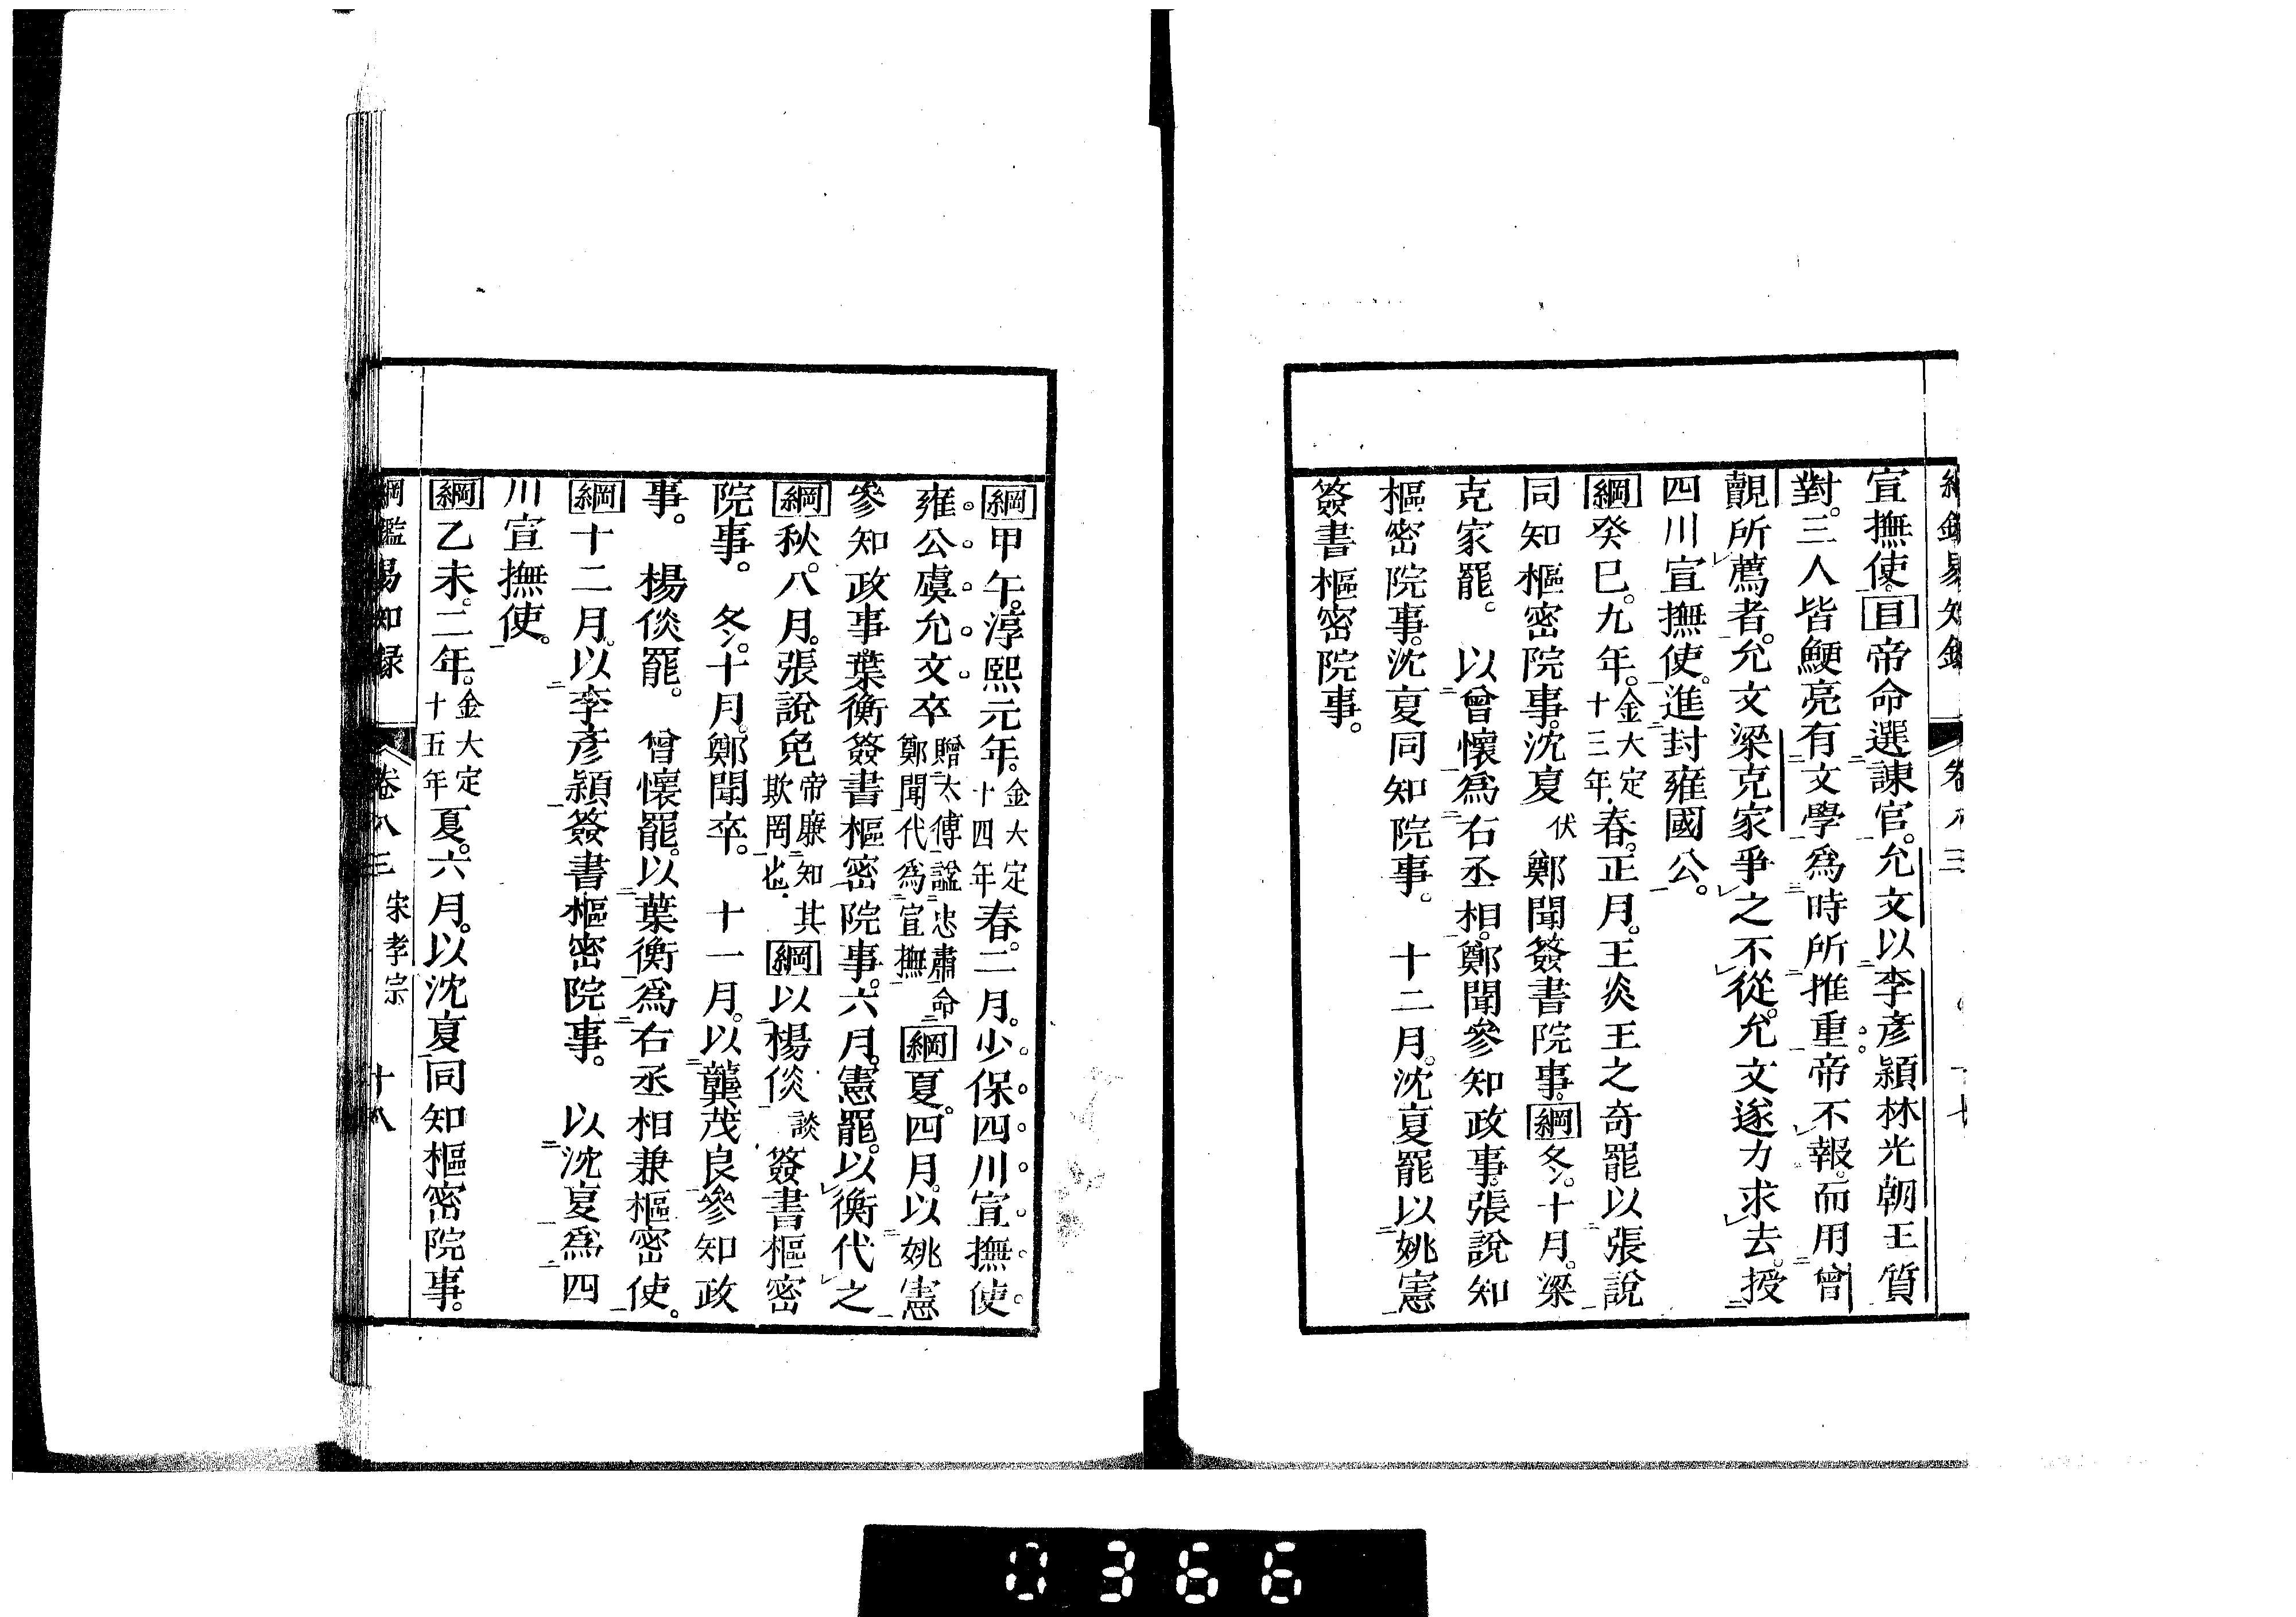 宣撫使。目帝命選諫官。允文以李彥穎林光朝王質
對。三人皆鯁亮有文學爲時所推重帝不報。而用曾
覿所薦者。允文梁克家爭之不從。允文遂力求去。授
四川宣撫使。進封雍國公。
綱癸巳。九年。金大定十三年春。正月。王炎王之奇罷以張說
同知樞密院事。沈夏伏鄭聞簽書院事。綱冬。十月。梁
克家罷。以曾懷爲右丞相。鄭聞參知政事。張說知
樞密院事。沈夏同知院事。十二月。沈夏罷以姚憲
簽書樞密院事。
綱甲午。淳熙元年。金大定十四年春。二月。少保四川宣撫使
雍公虞允文卒贈太傅諡忠肅命鄭聞代爲宣撫綱夏。四月。以姚憲
參知政事。葉衡簽書樞密院事。六月。憲罷。以衡代之
綱秋。八月。張說免帝廉知其欺罔也綱以楊倓談簽書樞密
院事。冬。十月。鄭聞卒。十一月。以龔茂良參知政
事。楊倓罷。曾懷罷。以葉衡爲右丞相兼樞密使。
綱十二月。以李彥穎簽書樞密院事。以沈夏爲四
川宣撫使。
綱乙未。二年。金大定十五年夏。六月。以沈夏同知樞密院事。
綱鑑易知錄 卷八三 宋孝宗 十八
0366